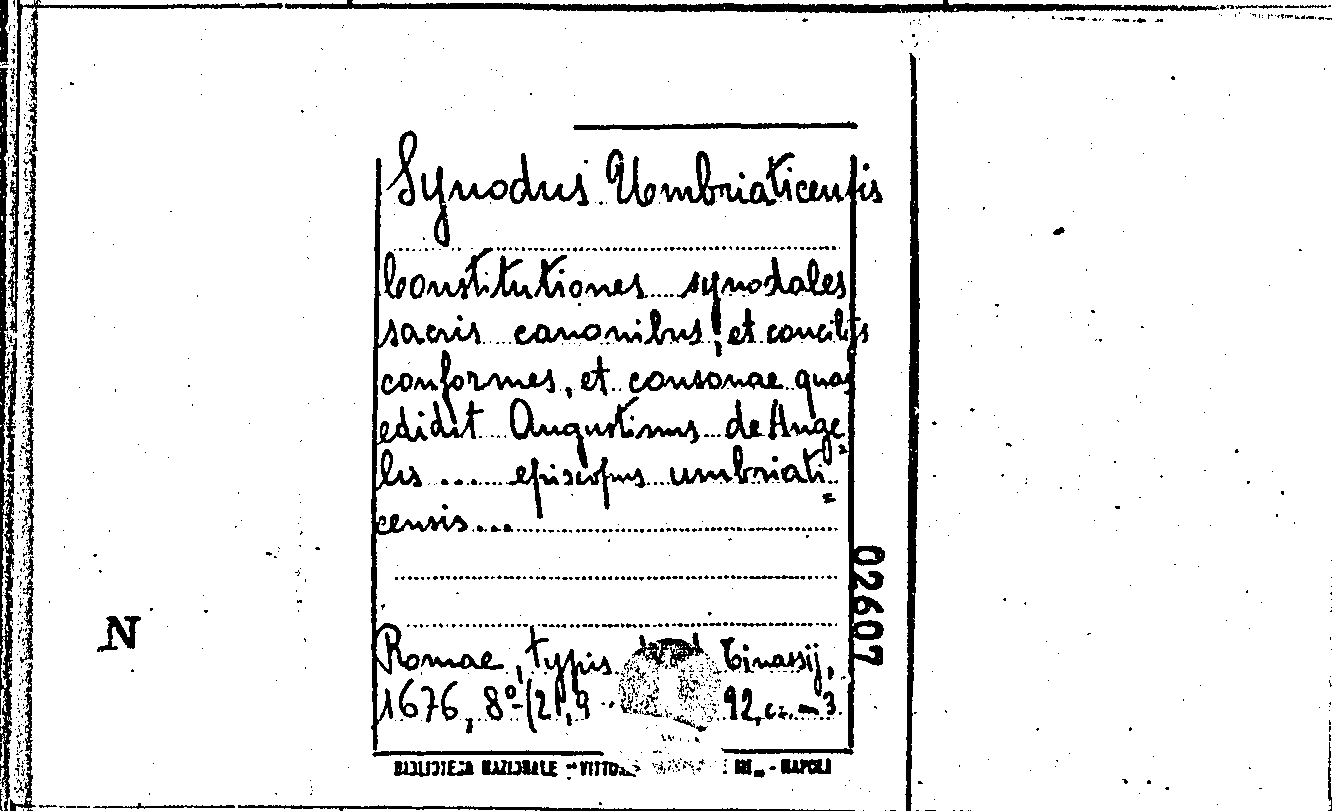 Synodus Umbriaticensis
Constitutiones synodales
sacris canonibus, et concilijs
conformes, et consonae quas
edidit Augustinus de Ange=
lis ... episcopus umbriati=
censis...
02607
N
Romae, typis Tinassij,
1676, 8º (21, 9 92, c. m 3
BIBLIOTECA NAZIONALE - VITTO III - NAPOLI